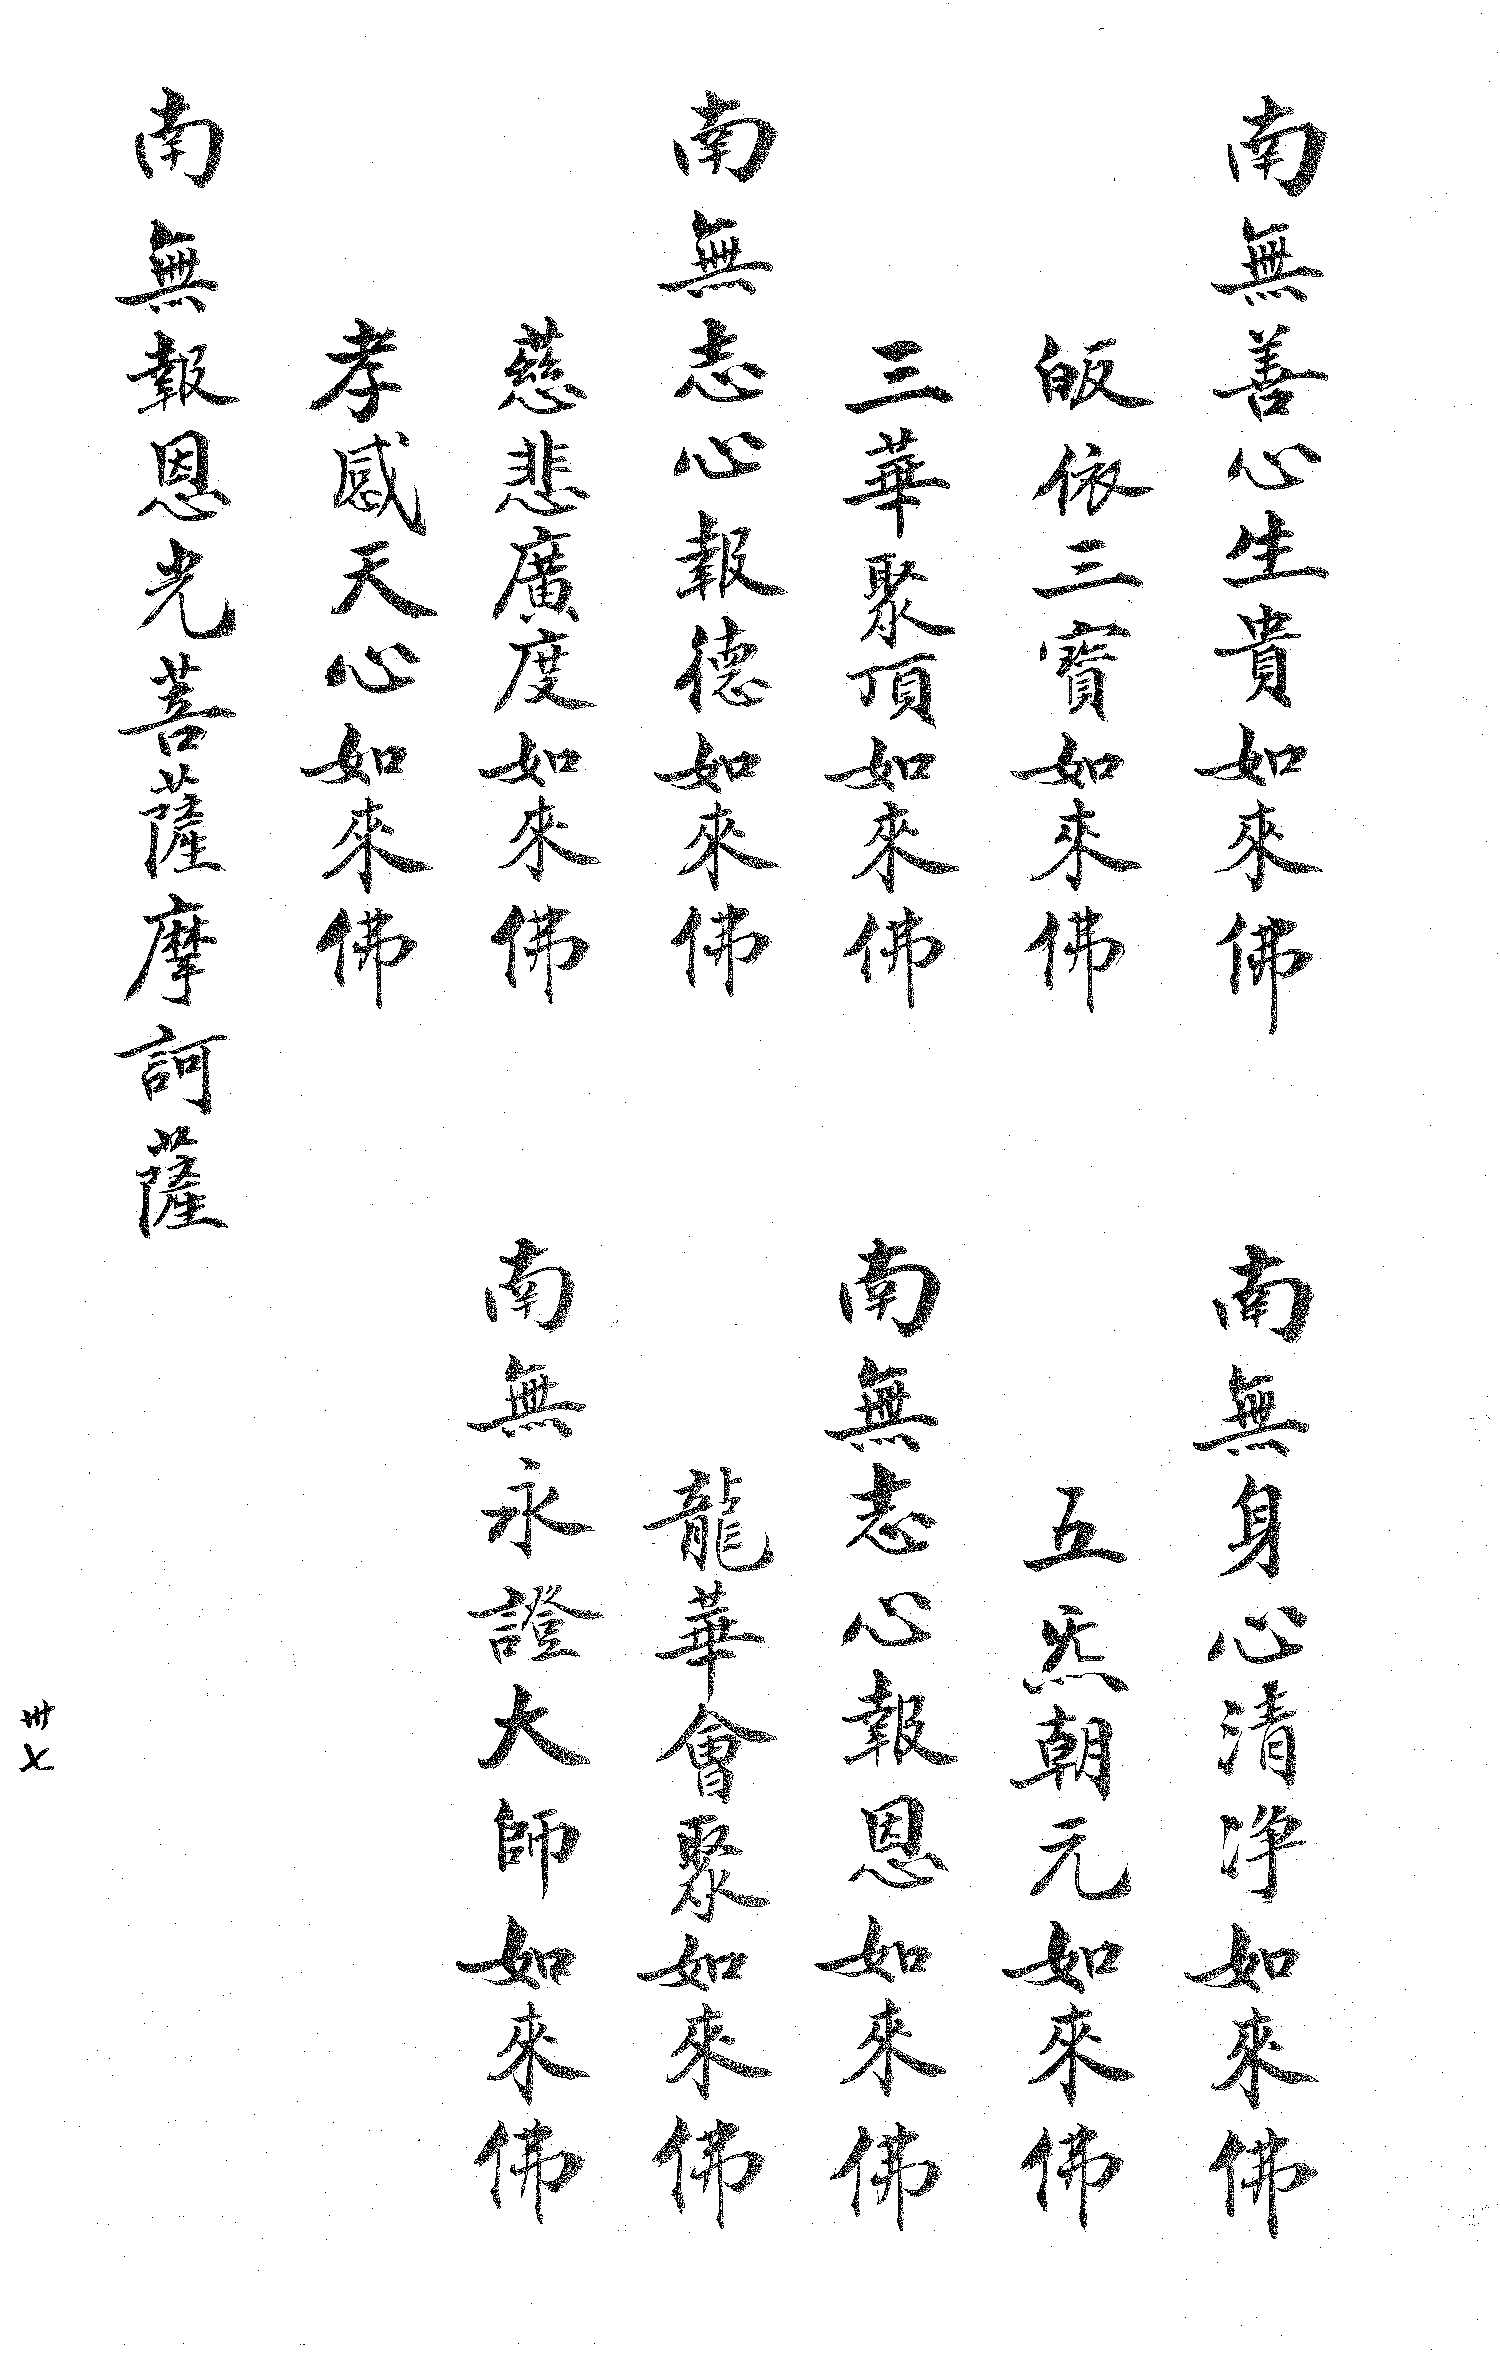 南無善心生貴如來佛
南無身心清净如來佛
皈依三寶如來佛
五炁朝元如來佛
三華聚頂如來佛
南無志心報恩如來佛
南無志心報德如來佛
龍華會聚如來佛
慈悲廣度如來佛
南無永證大師如來佛
孝感天心如來佛
南無報恩光菩薩摩訶薩
卅七